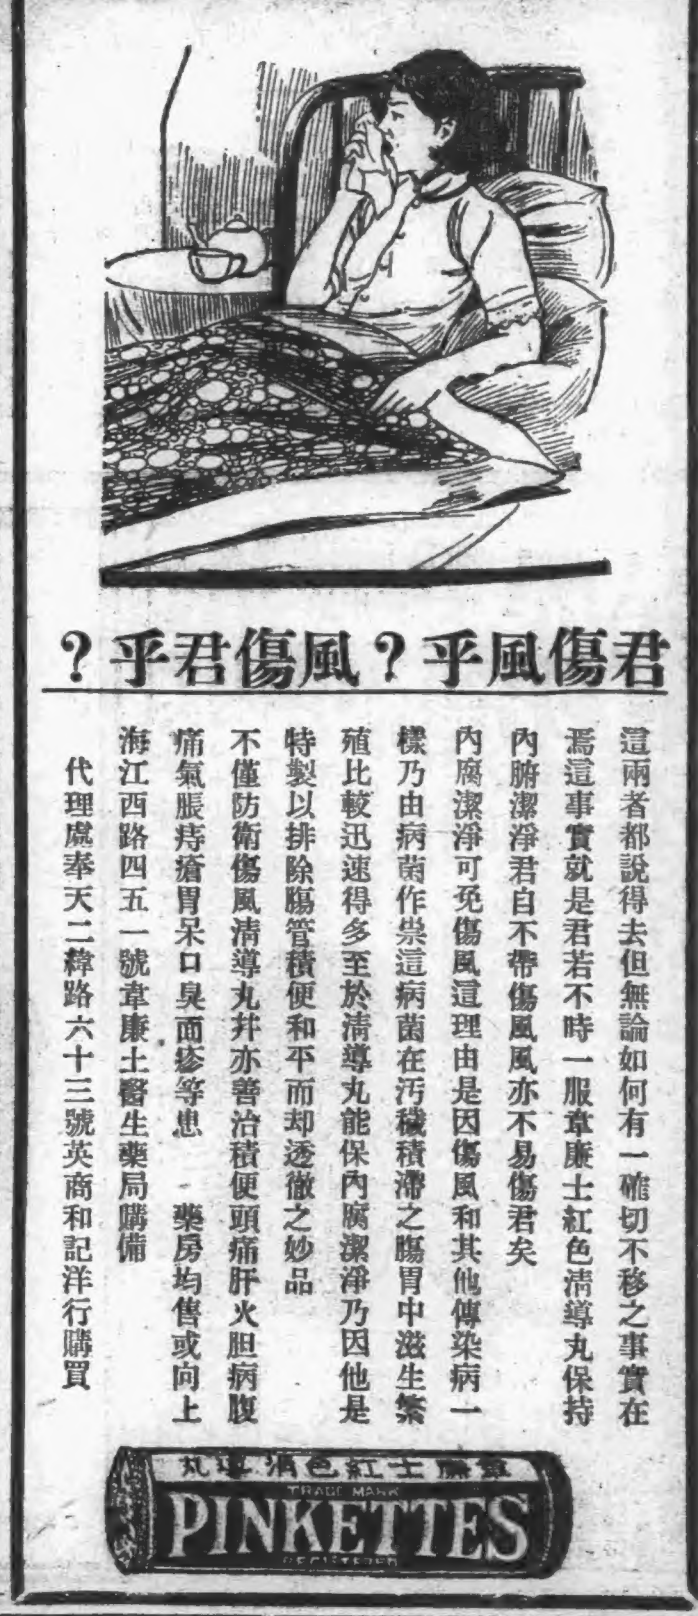 君傷風乎?風傷君乎?
這兩者都說得去但無論如何有一確切不移之事實在
焉這事實就是君若不時一服韋廉士紅色清導丸保持
內腑潔淨君自不帶傷風風亦不易傷君矣
內腐潔淨可免傷風這理由是因傷風和其他傳染病一
樣乃由病菌作祟這病菌在污穢積滯之腸胃中滋生繁
殖比較迅速得多至於清導丸能保內腐潔淨乃因他是
特製以排除腸管積便和平而却透徹之妙品
不僅防衛傷風清導丸幷亦善治積便頭痛肝火胆病腹
痛氣脹痔瘡胃呆口臭面疹等患 藥房均售或向上
海江西路四五一號韋廉士醫生藥局購備
代理處奉天二緯路六十三號英商和記洋行購買
韋廉士紅色清導丸
TRADE MARK
PINKETTES
REGISTERED